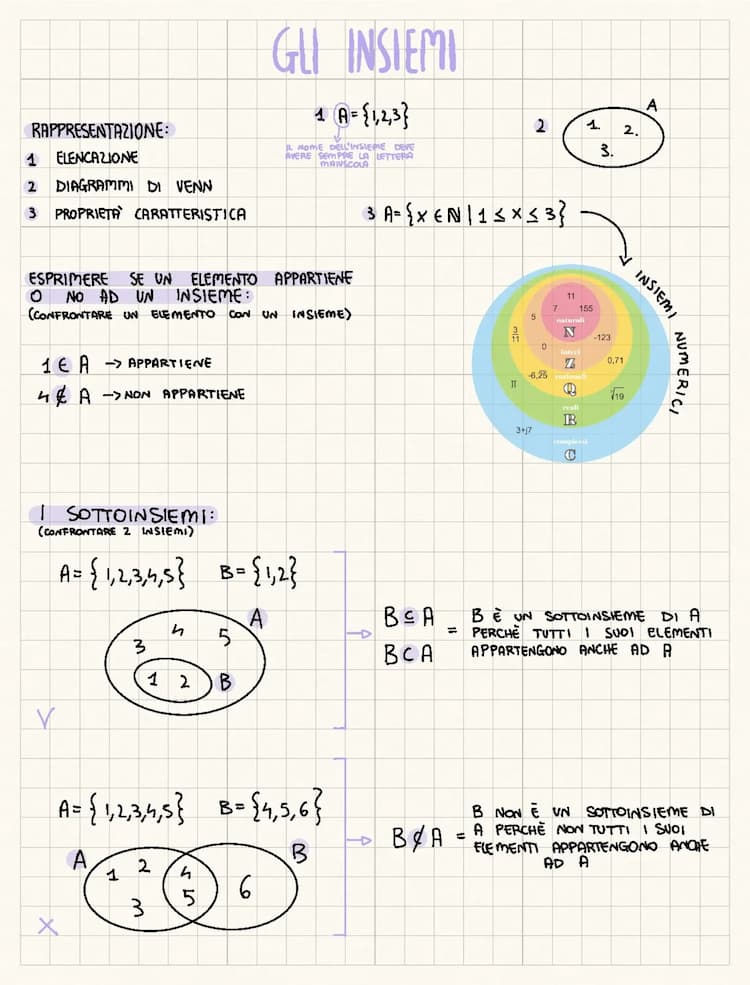 GLI INSIEMI
RAPPRESENTAZIONE:
1 ELENCAZIONE
2 DIAGRAMMI DI VENN
3 PROPRIETÀ CARATTERISTICA
1 A={1,2,3}
IL NOME DELL'INSIEME DEVE
AVERE SEMPRE LA LETTERA
MAIUSCOLA
2
A
1. 2.
3.
3 A={X ∈ N | 1 ≤ X ≤ 3}
INSIEMI NUMERICI
11
7 155
5
naturali
N
3/11
-123
0
interi
Z
0,71
-6,25
razionali
Q
π
√19
reali
R
3+j7
complessi
C
ESPRIMERE SE UN ELEMENTO APPARTIENE
O NO AD UN INSIEME:
(CONFRONTARE UN ELEMENTO CON UN INSIEME)
1 ∈ A –> APPARTIENE
4 ∉ A –> NON APPARTIENE
I SOTTOINSIEMI:
(CONFRONTARE 2 INSIEMI)
A={1,2,3,4,5} B={1,2}
A
3 4 5
1 2 B
V
B⊆A
B⊂A
=
B È UN SOTTOINSIEME DI A
PERCHÈ TUTTI I SUOI ELEMENTI
APPARTENGONO ANCHE AD A
A={1,2,3,4,5} B={4,5,6}
A B
1 2 4
3 5 6
X
B⊄A =
B NON È UN SOTTOINSIEME DI
A PERCHÈ NON TUTTI I SUOI
ELEMENTI APPARTENGONO ANCHE
AD A